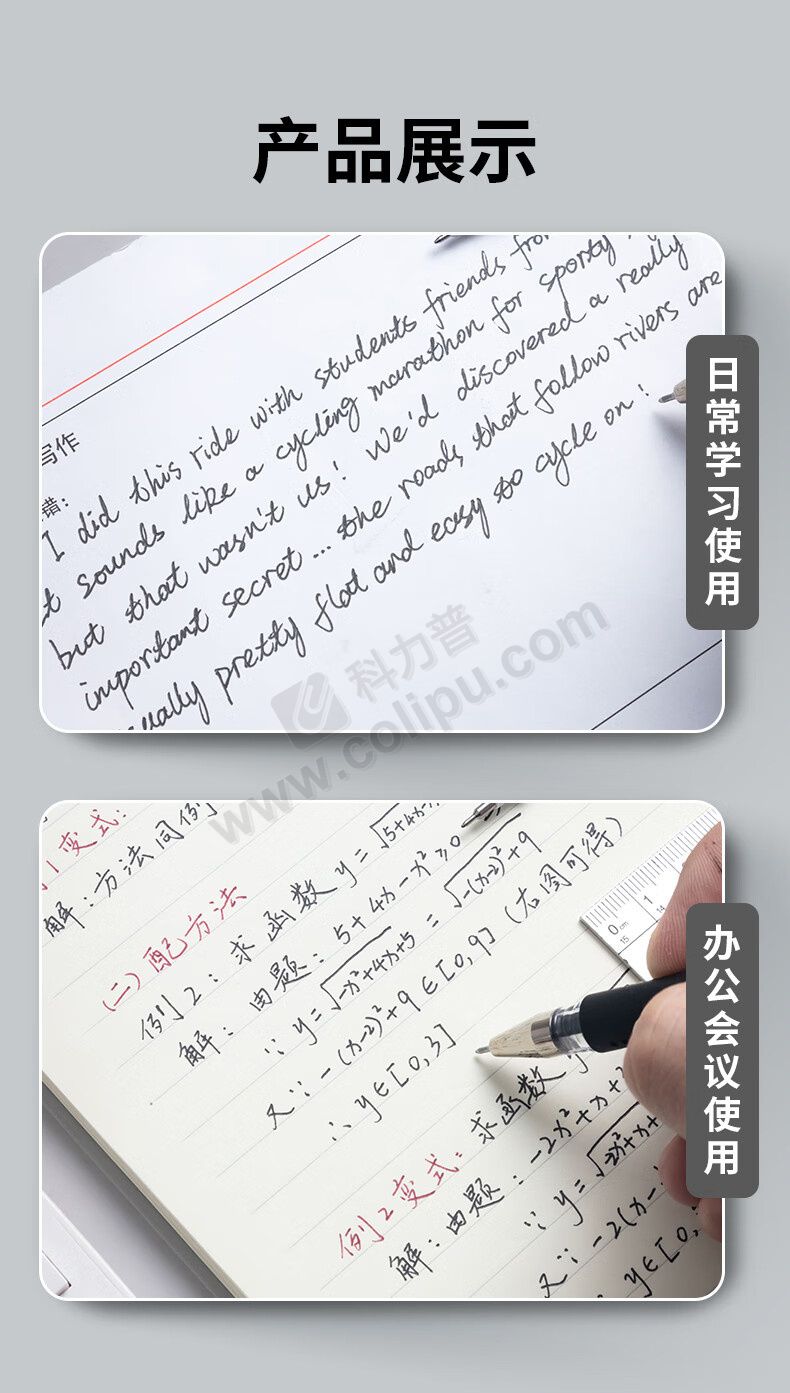 产品展示
写作
错:
I did this ride with students friends from
sounds like a cycling marathon for sporty
but that wasn't us! We'd discovered a really
important secret... the roads that follow rivers are
ually pretty flat and easy to cycle on!
日常学习使用
科力普
www.colipu.com
1变式:
解:方法同例
(二)配方法
例2:求函数y=√5+4x-
解:由题:5+4x-x²≥0
∵y=√-x²+4x+5=√-(x-2)²+9
又∵-(x-2)²+9∈[0,9](右图可得)
∴y∈[0,3]
例2变式:求函数y
解:由题:-2x²+x+
∵y=√2x²+x+
又∵-2(x-
y∈[0,
0 1
cm
15 14
办公会议使用